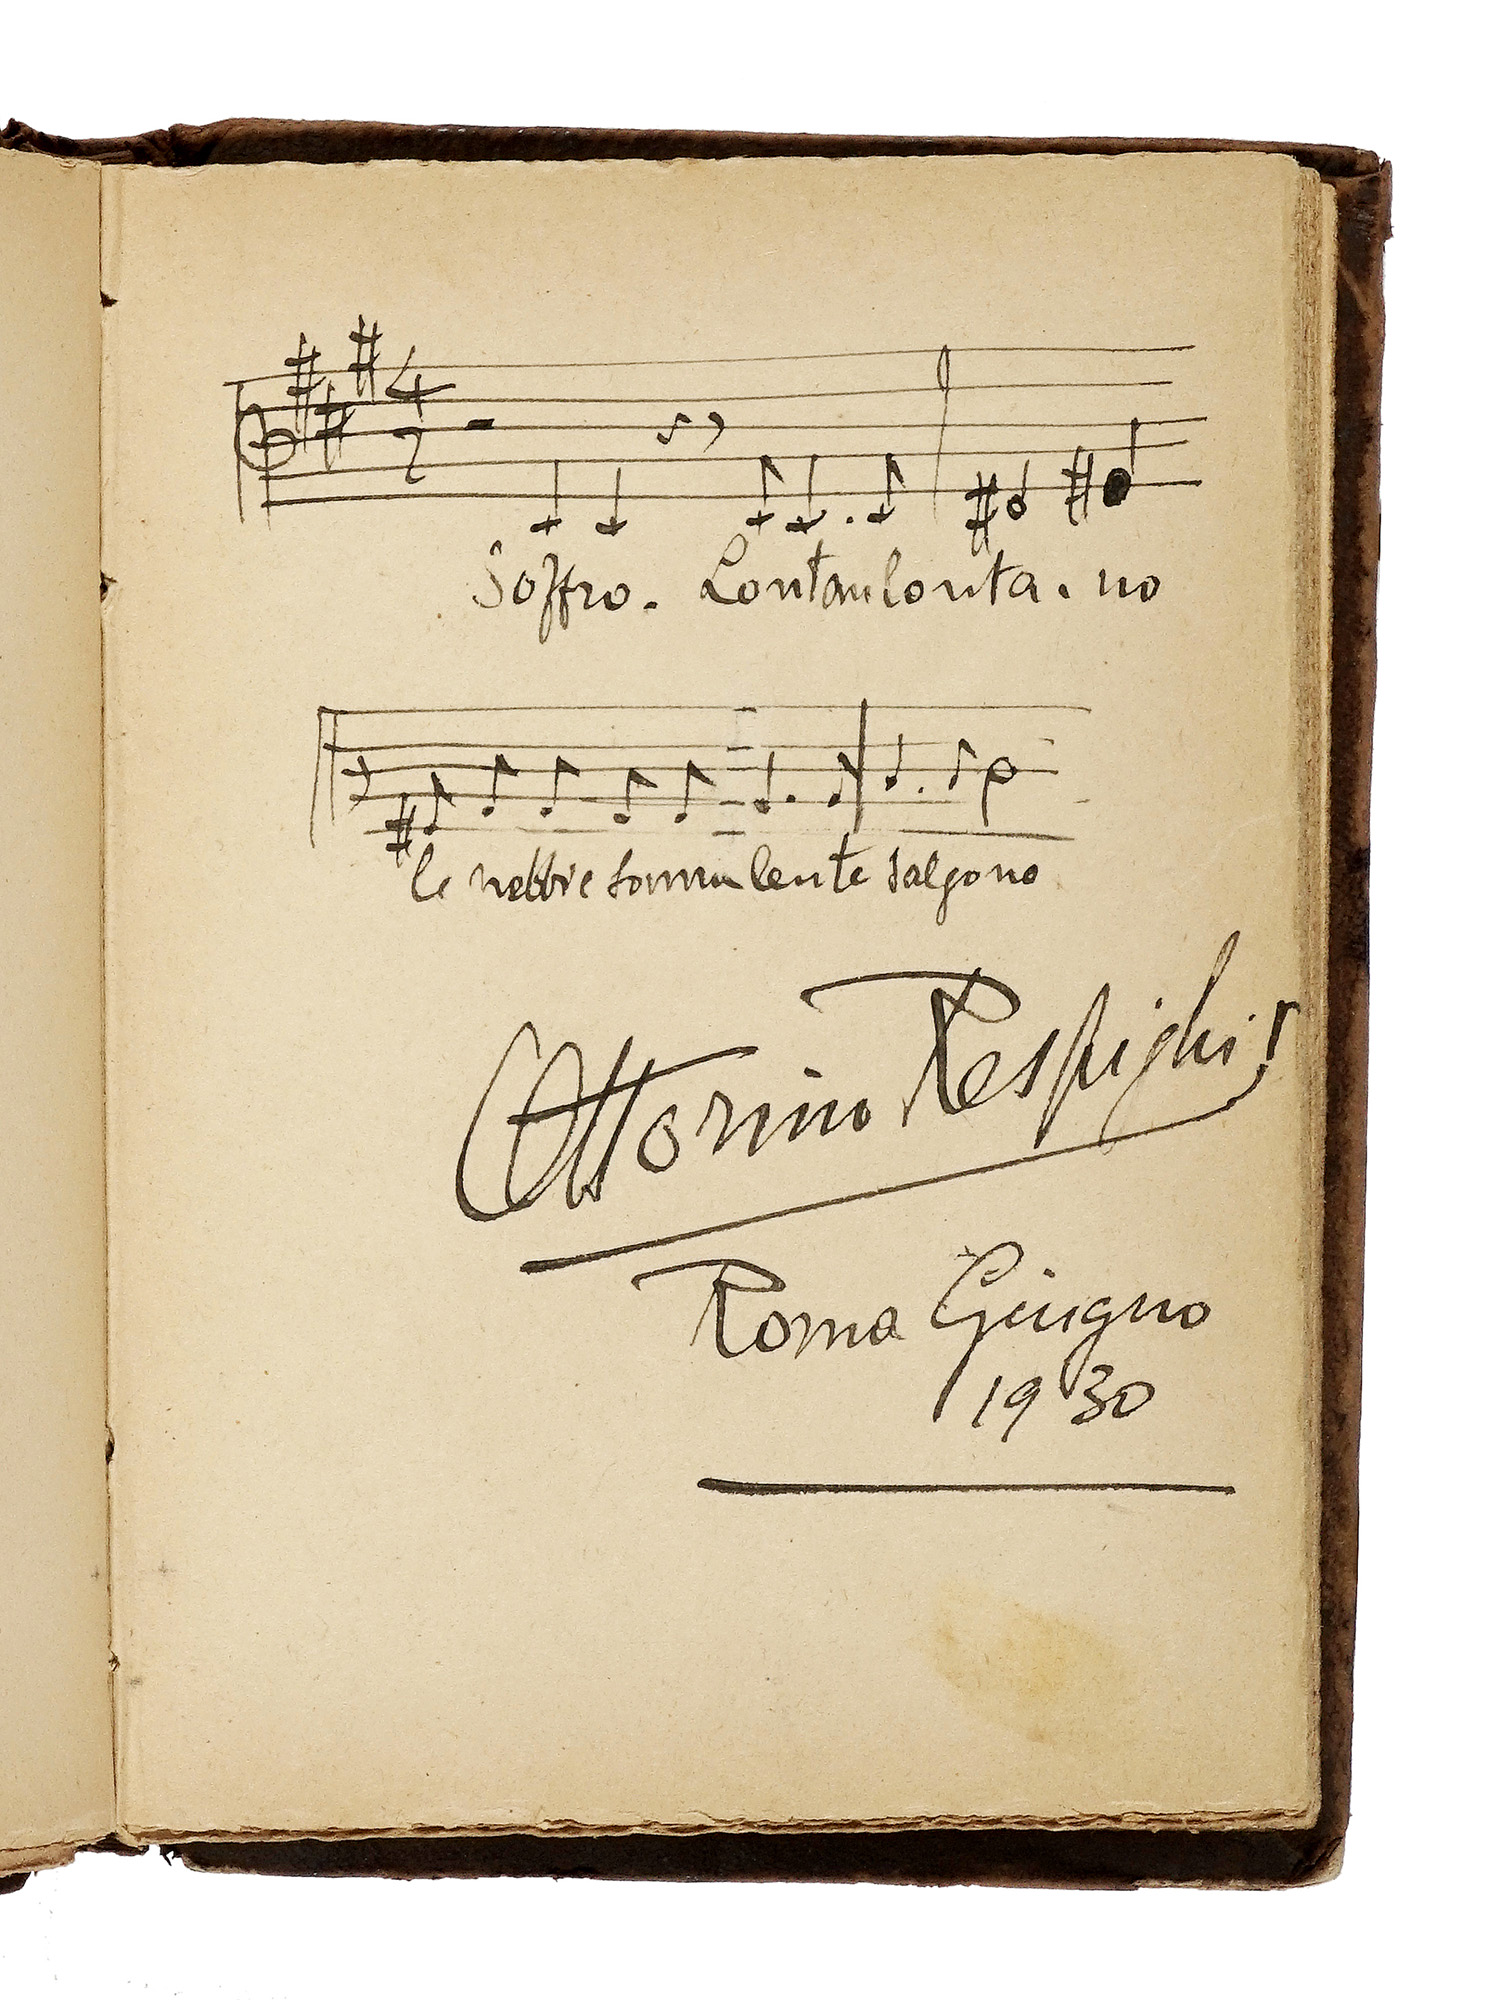 4
2
Soffro. Lontan lonta. no
le nebbie sonnolente salgono
Ottorino Respighi
Roma Giugno
1930